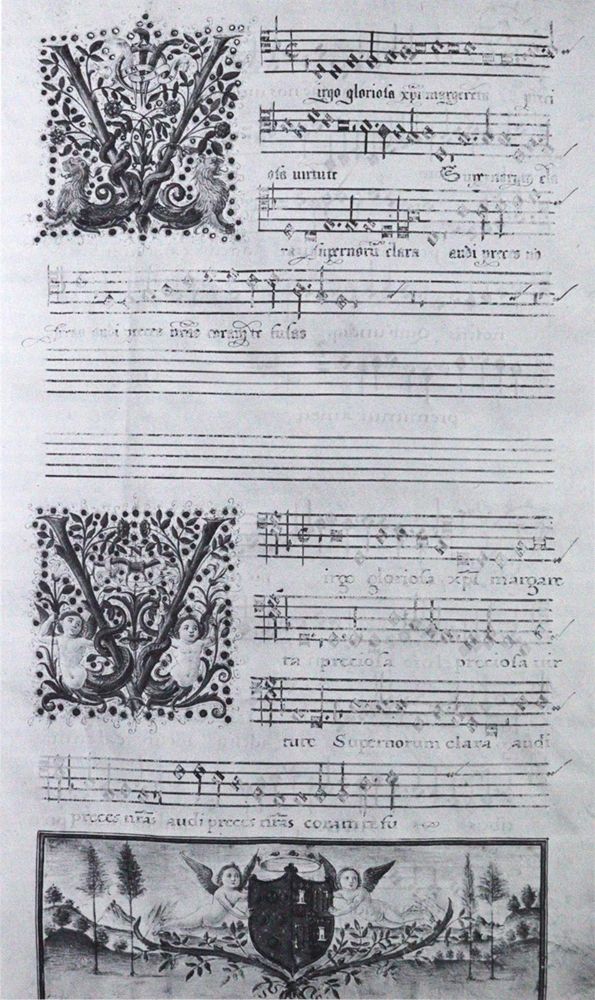 irgo gloriosa xpi margareta preci
osa virtute Supernorum cla
ra supernorū clara audi preces no
audi preces nr̄as coram te fusas
irgo gloriosa xpi margare
ta preciosa preciosa vir
tute Supernorum clara audi
preces nr̄as audi preces nr̄as coram te fu